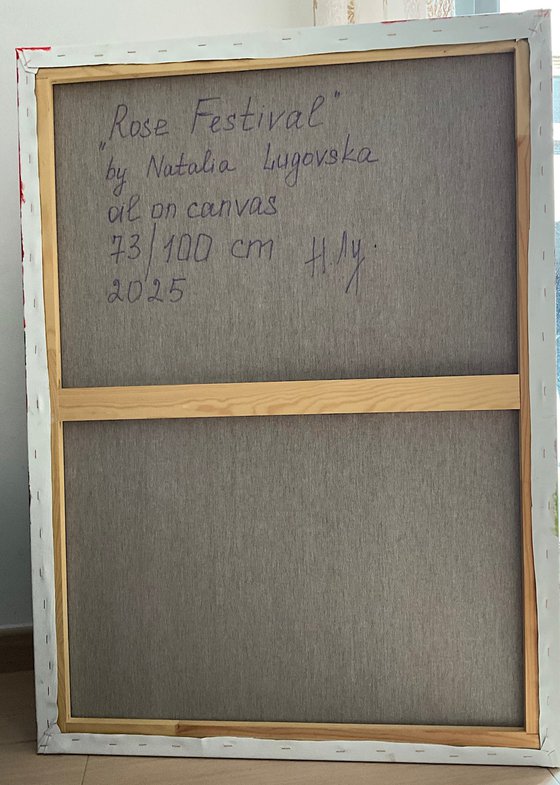 „Rose Festival"
by Natalia Lugovska
oil on canvas
73/100 cm Н.Лу.
2025